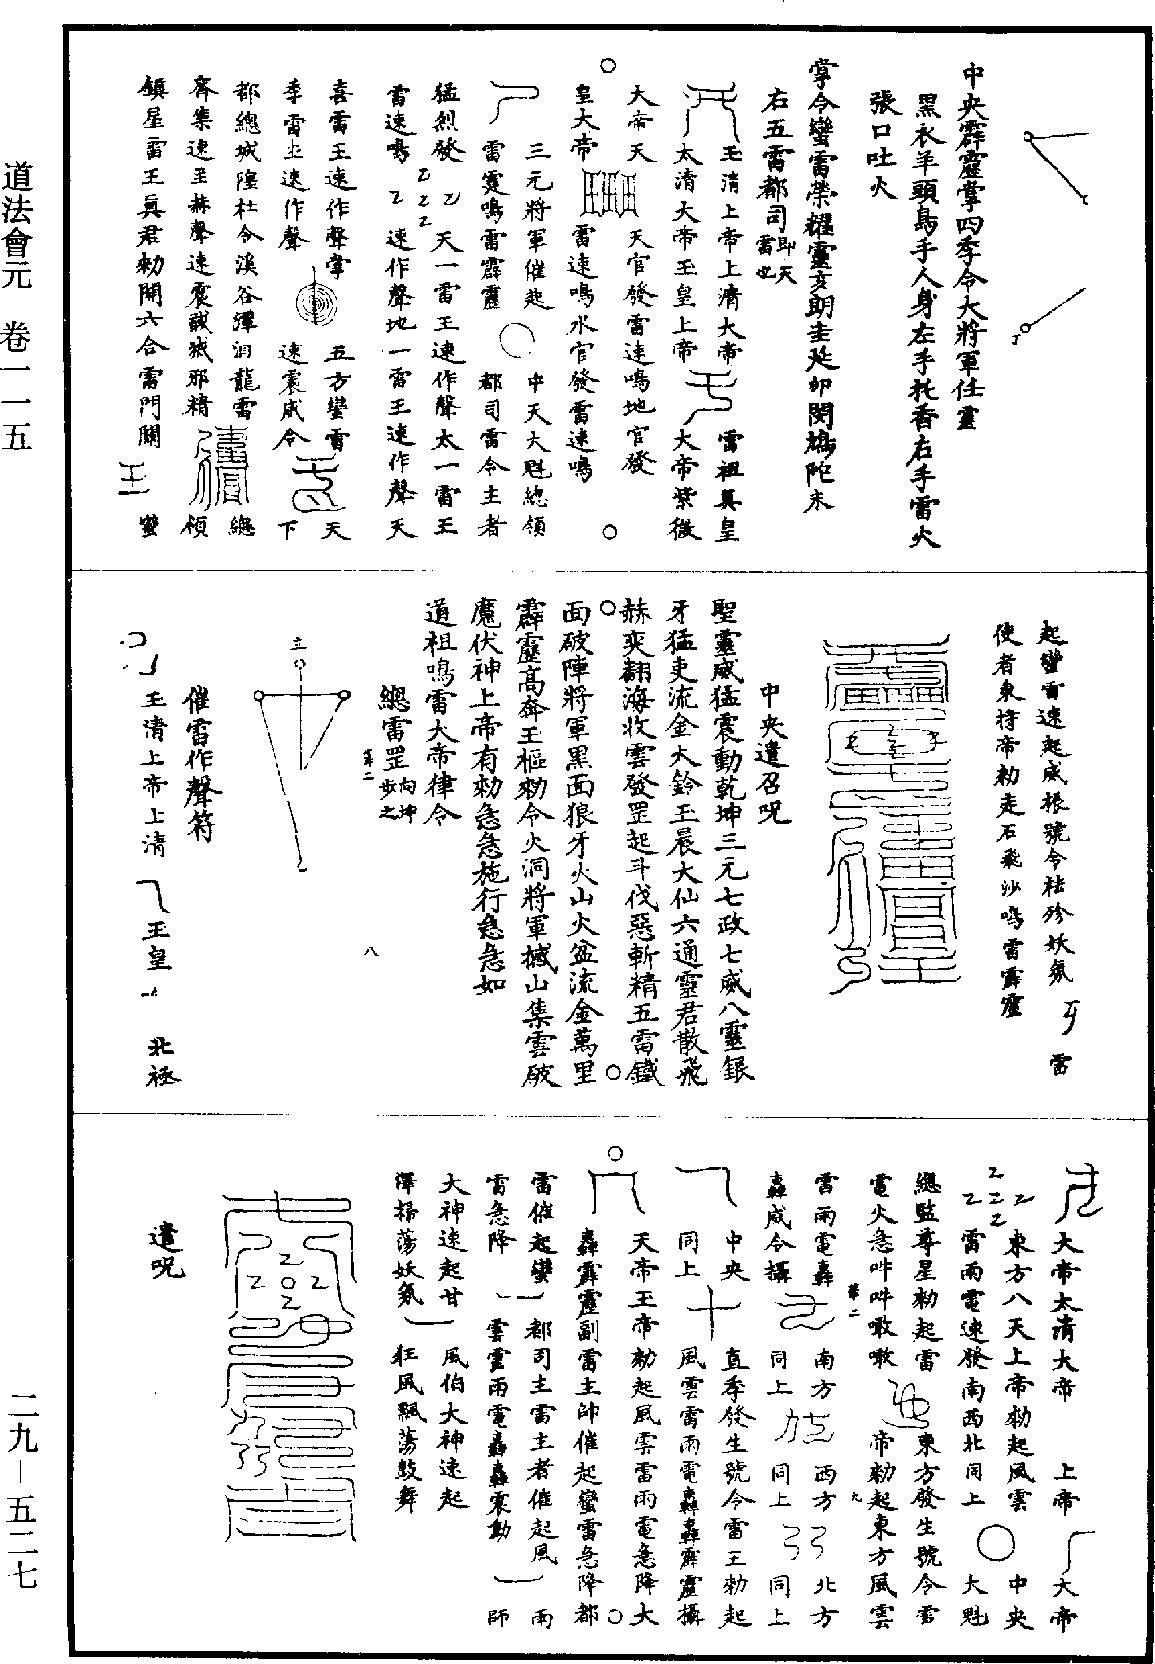 道法會元　卷一一五
二九－五二七
中央霹靂掌四季令大將軍任靈
黑衣羊頭鳥手人身左手托香右手雷火
張口吐火
掌令蠻雷榮耀靈亥明圭延却閔鳩陀末
右五雷都司即天
雷也
玉清上帝上清大帝　雷祖真皇
太清大帝玉皇上帝　大帝紫微
大帝天　天官發雷速鳴地官發
皇大帝　雷速鳴水官發雷速鳴
三元將軍催起　中天大魁總領
雷霆鳴雷霹靂　都司雷令主者
猛烈發　乙　天一雷王速作聲太一雷王
雷速鳴　乙　速作聲地一雷王速作聲天
喜雷王速作聲掌　五方蠻雷　天
季雷王速作聲　速震威令　下
都總城隍社令溪谷潭洞龍雷　總
齊集速至赫聲速震誠狱邪精　領
鎮星雷王真君勑開六合雷門關　蠻
起蠻雷速起威根號令枯殄妖氛　雷
使者束持帝勑走石飛沙鳴雷霹靂
中央遣召呪
聖靈威猛震動乾坤三元七政七威八靈銀
牙猛吏流金大鈴玉晨大仙六通靈君散飛
赫奕翻海收雲發罡起斗伐惡斬精五雷鐵
面破陣將軍黑面狼牙火山火盆流金萬里
霹靂高奔玉樞勑令火洞將軍撼山集雲破
魔伏神上帝有勑急急施行急急如
道祖鳴雷大帝律令
總雷罡向坤
步之
第二
八
催雷作聲符
玉清上帝上清　玉皇上　北極
大帝太清大帝　上帝　大帝
東方八天上帝勑起風雲　中央
雷雨電速發南西北同上　大魁
總監尊星勑起雷　東方發生號令雷
電火急吽吽噉噉　帝勑起東方風雲
第二
九
雷雨電轟　南方　西方　北方
轟威令攝　同上　同上　同上
中央　直季發生號令雷王勑起
同上　風雲雷雨電轟轟霹靂攝
天帝王帝勑起風雲雷雨電急降大
轟霹靂副雷主帥催起蠻雷急降都
雷催起蠻　都司主雷主者催起風　雨
雷急降　雲雷雨電轟轟震動　師
大神速起甘　風伯大神速起
澤掃蕩妖氛　狂風飄蕩鼓舞
遣呪